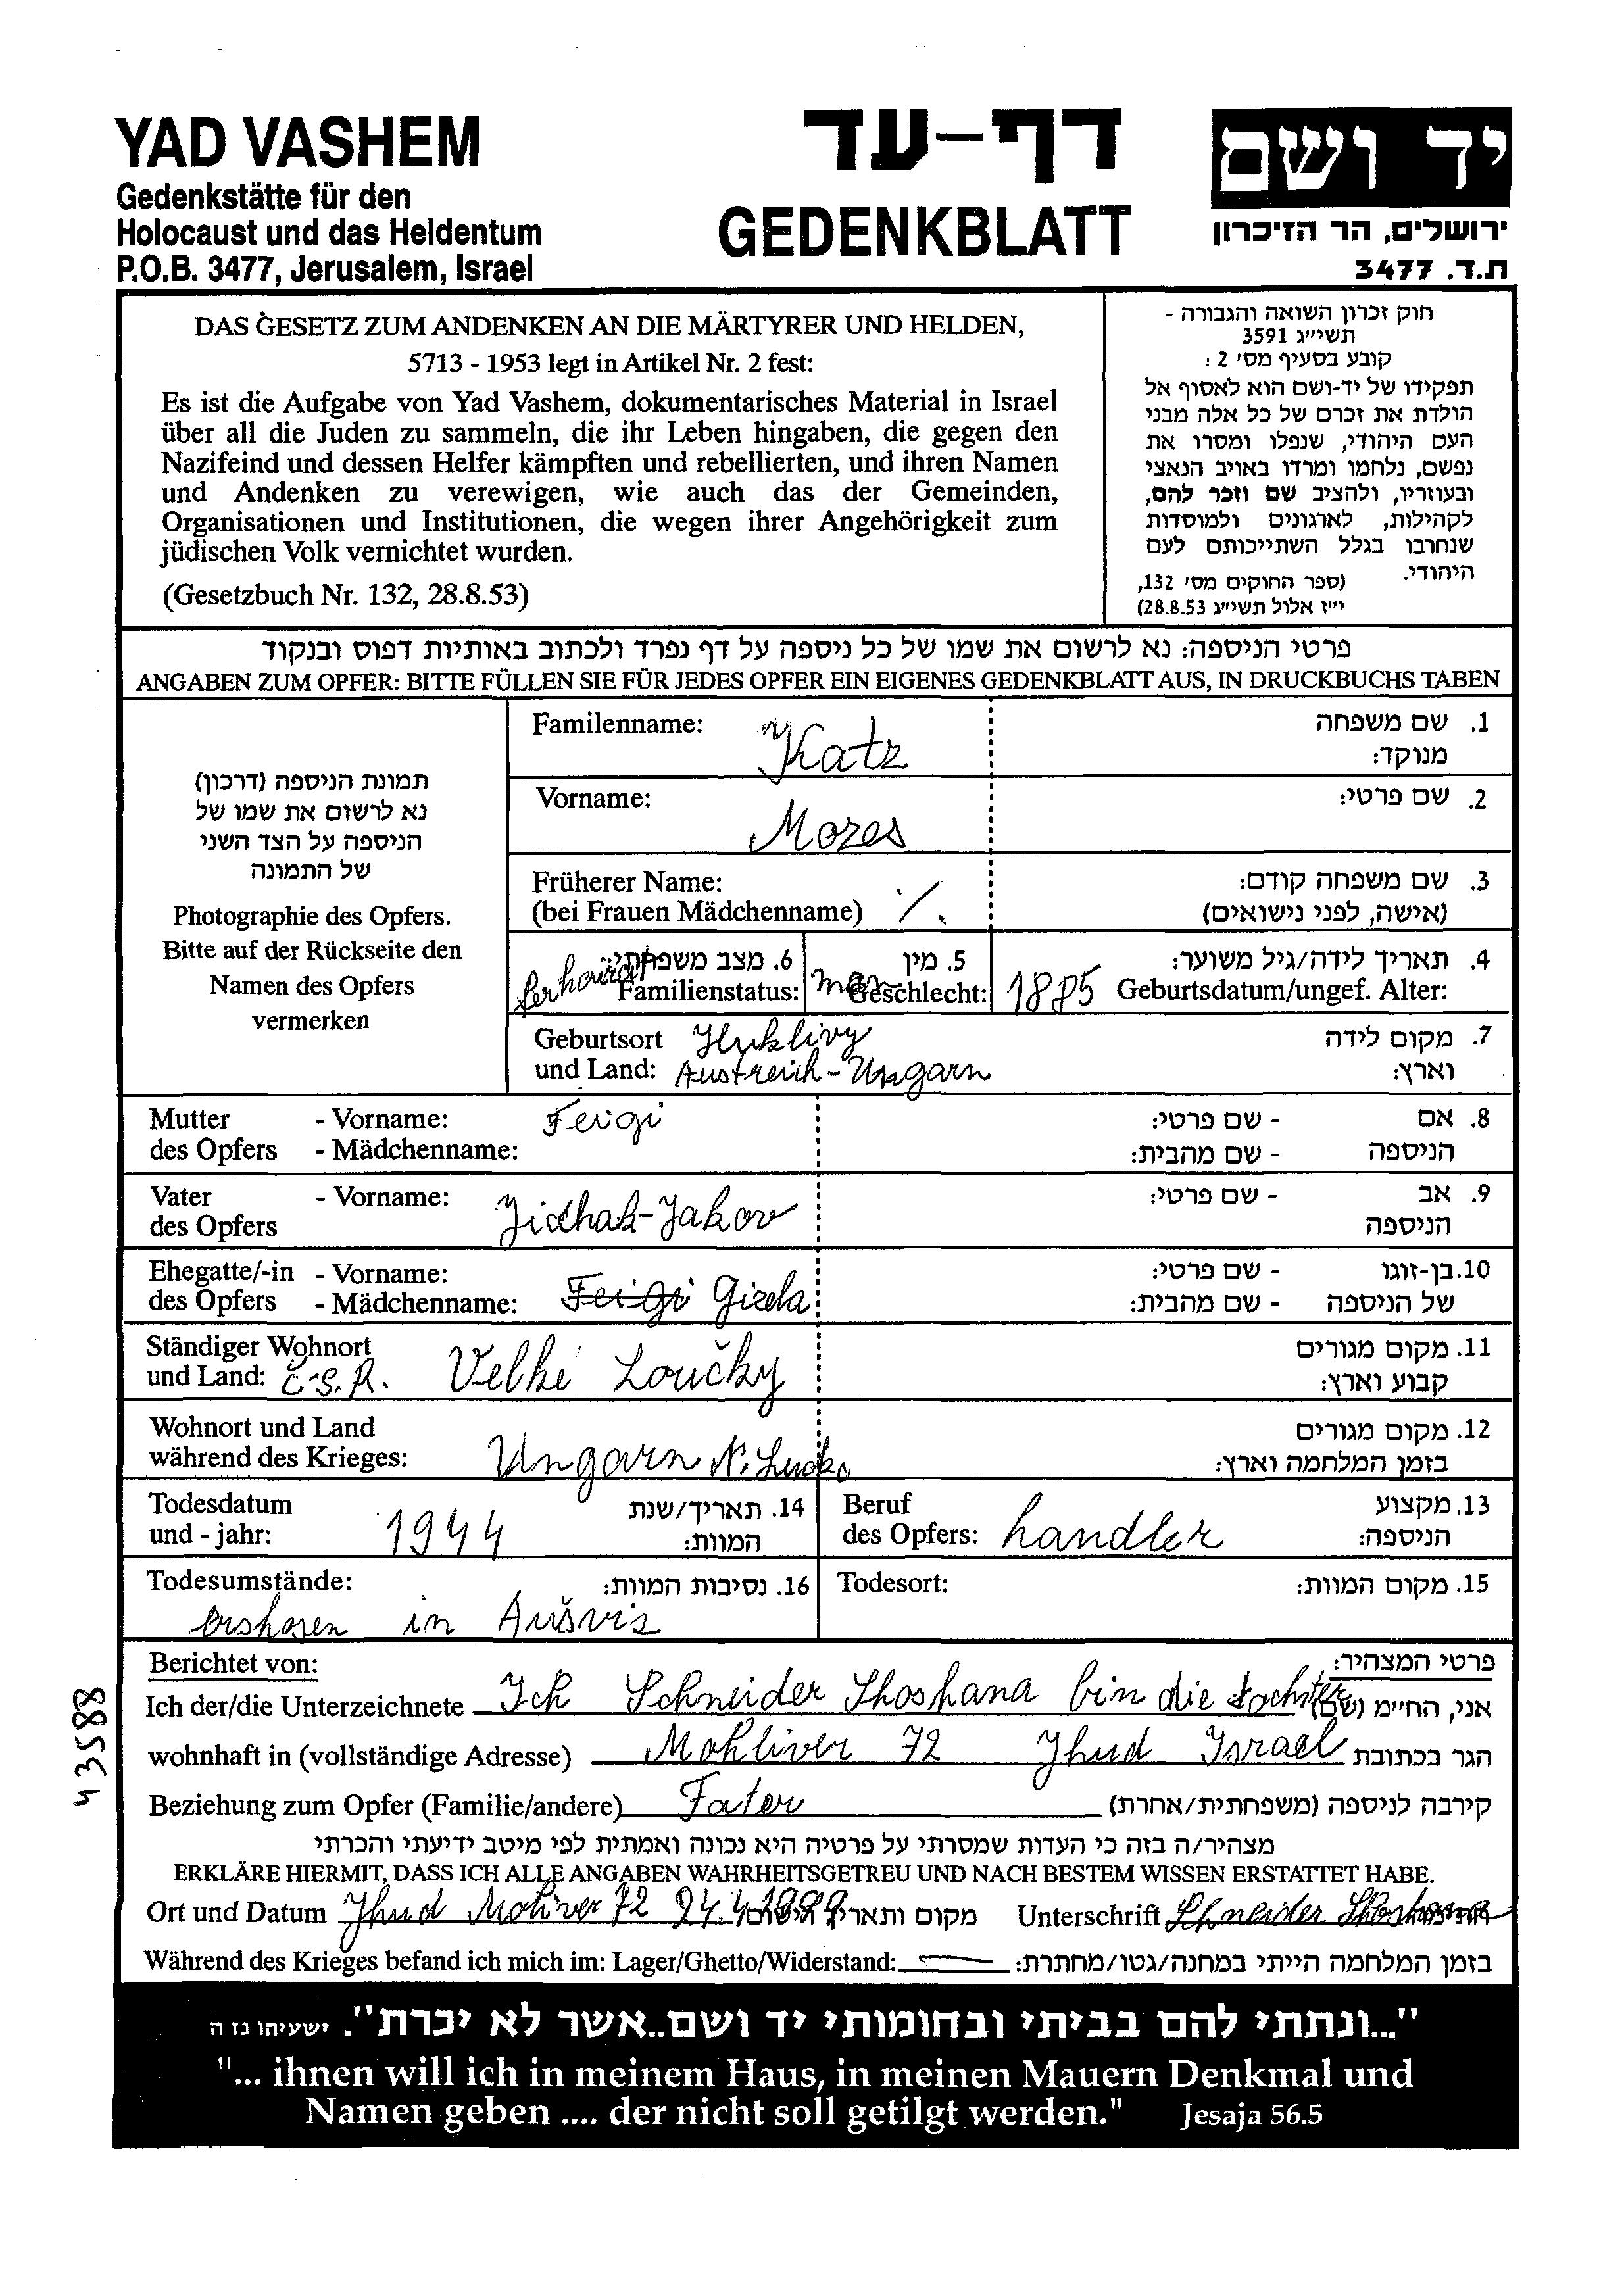 YAD VASHEM
Gedenkstätte für den
Holocaust und das Heldentum
P.O.B. 3477, Jerusalem, Israel
דף-עד
GEDENKBLATT
יד ושם
ירושלים, הר הזיכרון
ת.ד. 3477
DAS GESETZ ZUM ANDENKEN AN DIE MÄRTYRER UND HELDEN,
5713 - 1953 legt in Artikel Nr. 2 fest:
Es ist die Aufgabe von Yad Vashem, dokumentarisches Material in Israel
über all die Juden zu sammeln, die ihr Leben hingaben, die gegen den
Nazifeind und dessen Helfer kämpften und rebellierten, und ihren Namen
und Andenken zu verewigen, wie auch das der Gemeinden,
Organisationen und Institutionen, die wegen ihrer Angehörigkeit zum
jüdischen Volk vernichtet wurden.
(Gesetzbuch Nr. 132, 28.8.53)
חוק זכרון השואה והגבורה -
תשי״ג 3591
קובע בסעיף מס׳ 2 :
תפקידו של יד-ושם הוא לאסוף אל
הולדת את זכרם של כל אלה מבני
העם היהודי, שנפלו ומסרו את
נפשם, נלחמו ומרדו באויב הנאצי
ובעוזריו, ולהציב שם וזכר להם,
לקהילות, לארגונים ולמוסדות
שנחרבו בגלל השתייכותם לעם
היהודי. (ספר החוקים מס׳ 132,
י״ז אלול תשי״ג 28.8.53)
פרטי הניספה: נא לרשום את שמו של כל ניספה על דף נפרד ולכתוב באותיות דפוס ובנקוד
ANGABEN ZUM OPFER: BITTE FÜLLEN SIE FÜR JEDES OPFER EIN EIGENES GEDENKBLATT AUS, IN DRUCKBUCHS TABEN
תמונת הניספה (דרכון)
נא לרשום את שמו של
הניספה על הצד השני
של התמונה
Photographie des Opfers.
Bitte auf der Rückseite den
Namen des Opfers
vermerken
Familenname: Katz 1. שם משפחה
מנוקד:
Vorname: Mozes 2. שם פרטי:
Früherer Name: 3. שם משפחה קודם:
(bei Frauen Mädchenname) ٪ (אישה, לפני נישואים)
6. מצב משפחתי: 5. מין 4. תאריך לידה/גיל משוער:
Familienstatus: Geschlecht: 1885 Geburtsdatum/ungef. Alter:
Geburtsort Huklivy 7. מקום לידה
und Land: Austreich-Ungarn וארץ:
Mutter - Vorname: Feigi 8. אם - שם פרטי:
des Opfers - Mädchenname: הניספה - שם מהבית:
Vater - Vorname: Jidhak-Jakov 9. אב - שם פרטי:
des Opfers הניספה
Ehegatte/-in - Vorname: 10. בן-זוגו - שם פרטי:
des Opfers - Mädchenname: Feigi Gizela של הניספה - שם מהבית:
Ständiger Wohnort 11. מקום מגורים
und Land: Č.S.R. Velké Loučky קבוע וארץ:
Wohnort und Land 12. מקום מגורים
während des Krieges: Ungarn N. בזמן המלחמה וארץ:
Todesdatum 14. תאריך/שנת
und - jahr: 1944 המוות:
Beruf 13. מקצוע
des Opfers: handler הניספה:
Todesumstände: 16. נסיבות המוות:
in Aušvis
Todesort: 15. מקום המוות:
Berichtet von: פרטי המצהיר:
Ich der/die Unterzeichnete Ich Schneider Shoshana bin die tochter אני, החי״מ (שם)
wohnhaft in (vollständige Adresse) Mohliver 72 Jhud Israel הגר בכתובת
Beziehung zum Opfer (Familie/andere) Fater קירבה לניספה (משפחתית/אחרת)
מצהיר/ה בזה כי העדות שמסרתי על פרטיה היא נכונה ואמתית לפי מיטב ידיעתי והכרתי
ERKLÄRE HIERMIT, DASS ICH ALLE ANGABEN WAHRHEITSGETREU UND NACH BESTEM WISSEN ERSTATTET HABE.
Ort und Datum Jhud Moliver 72 24.4.1999 מקום ותאריך Unterschrift Schneider Shoshana
Während des Krieges befand ich mich im: Lager/Ghetto/Widerstand: בזמן המלחמה הייתי במחנה/גטו/מחתרת:
"...ונתתי להם בביתי ובחומותי יד ושם..אשר לא יכרת". ישעיהו נז ה
"... ihnen will ich in meinem Haus, in meinen Mauern Denkmal und
Namen geben .... der nicht soll getilgt werden." Jesaja 56.5
43588